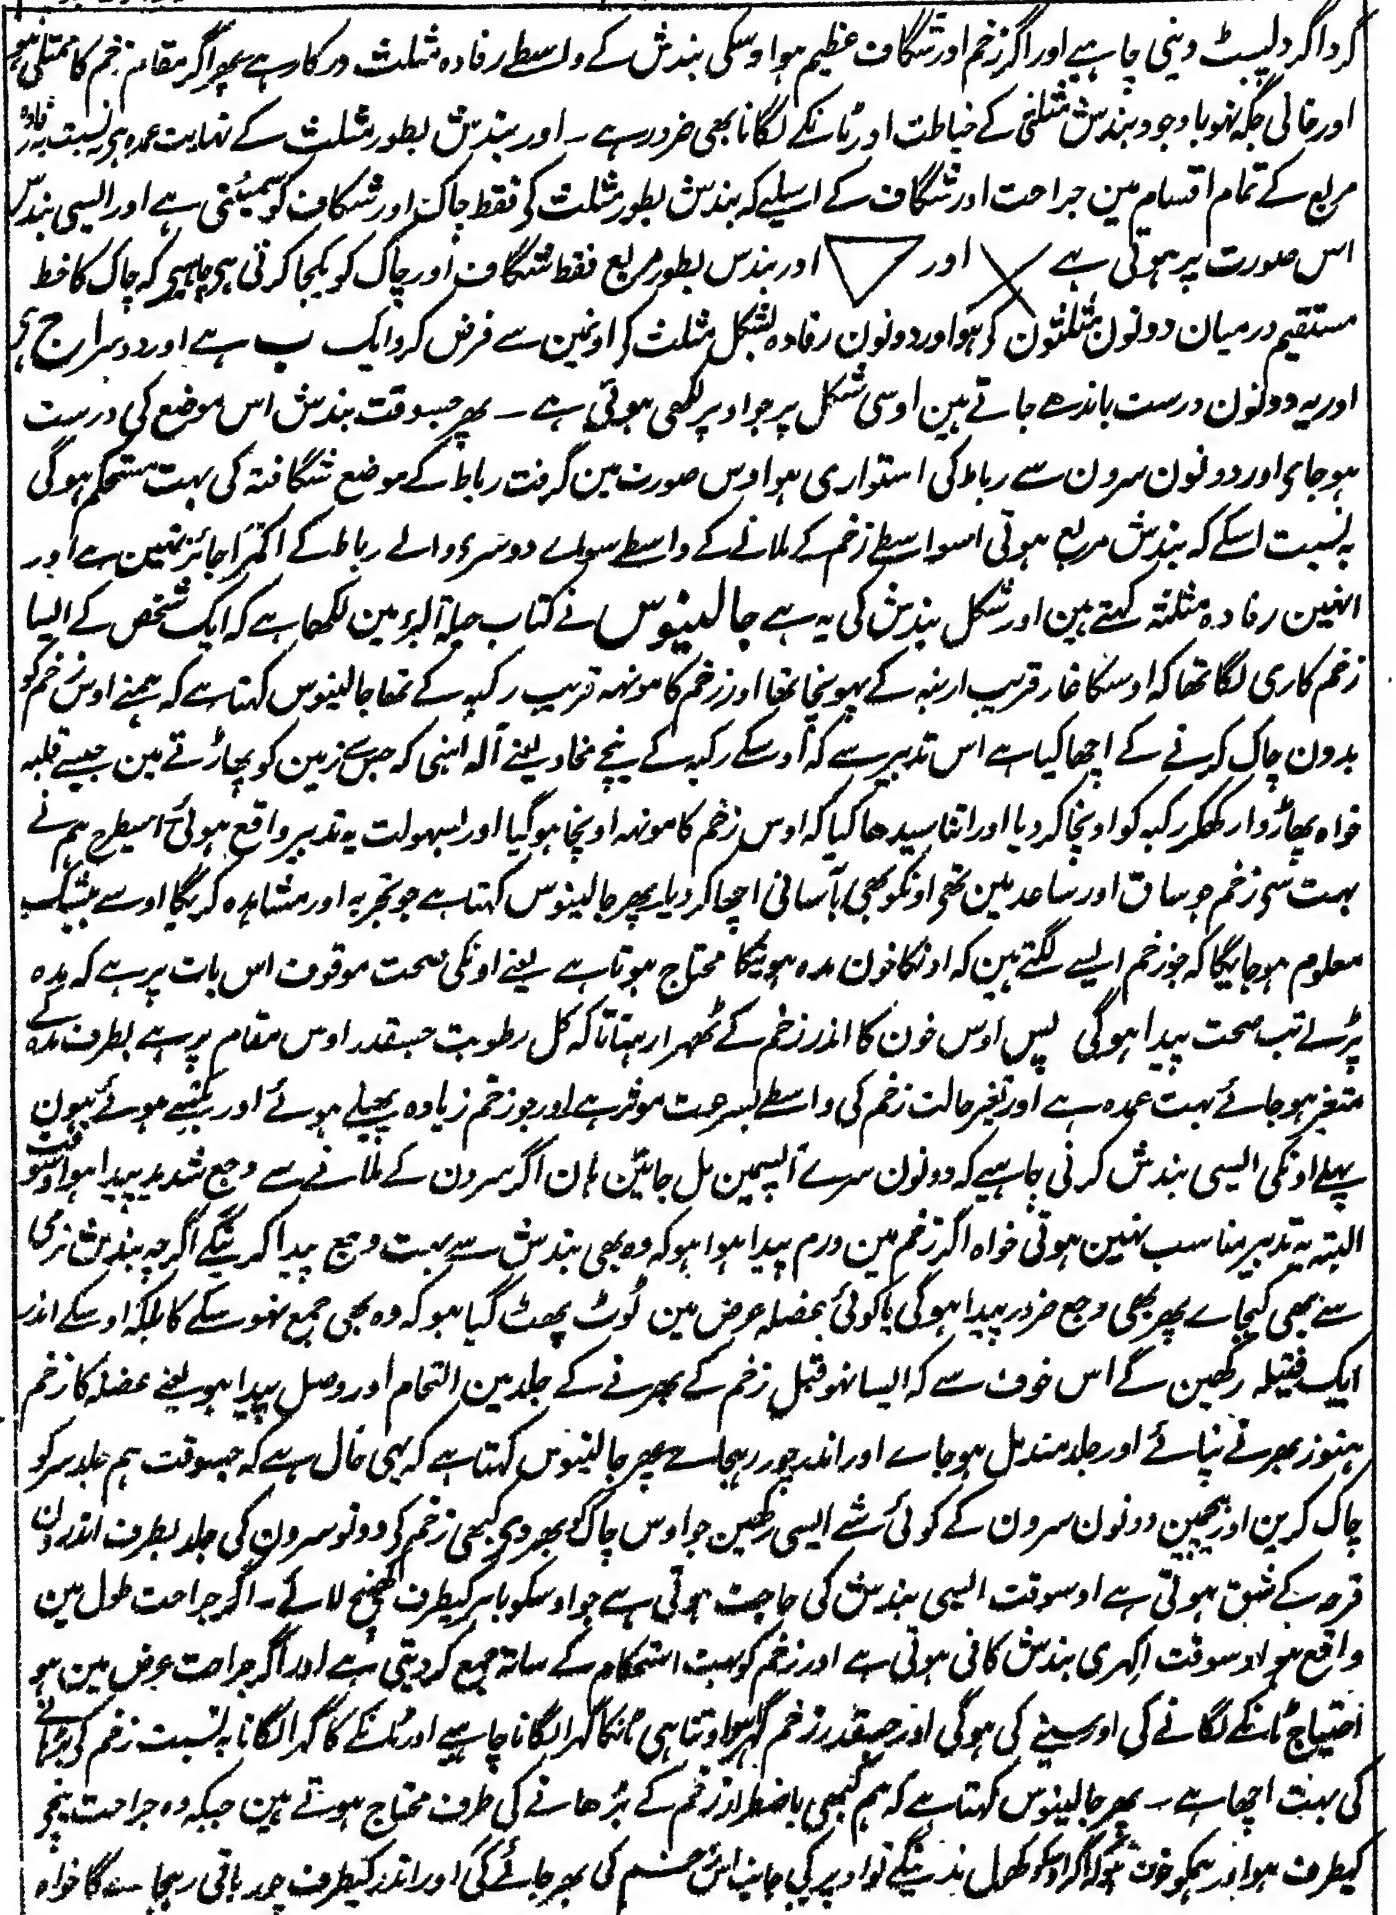 گرداگرد لپیٹ دینی چاہیے اور اگر زخم اور شگاف عظیم ہو اوسکی بندش کے واسطے رفادہ مثلث درکار ہے پھر اگر مقام زخم کا ممتلی ہو
اور خالی جگہ نہو باوجود بندش مثلثی کے خیاطت اور ٹانکے لگانا بھی ضرور ہے ۔ اور بندش بطور مثلث کے نہایت عمدہ ہی بہ نسبت رفادہ
مربع کے تمام اقسام مین جراحت اور شگاف کے اسلیے کہ بندش بطور مثلث کی فقط چاک اور شگاف کو سمیٹتی ہے اور ایسی بندش
اس صورت پر ہوتی ہے اور اور بندس بطور مربع فقط شگاف اور چاک کو یکجا کرتی ہی چاہیے کہ چاک کا خط
مستقیم درمیان دونون مثلثون کی ہو اور دونون رفادہ بشکل مثلث کی اونمین سے فرض کرو ایک ب ہے اور دوسرا ج ہی
اور یہ دونون درست باندھے جاتے ہین اوسی شکل پر جو اوپر لکھی ہوئی ہے ۔ پھر جسوقت بندش اس موضع کی درست
ہو جای اور دونون سرون سے رباط کی استواری ہو اوس صورت مین گرفت رباط کے موضع شگافتہ کی بہت مستحکم ہوگی
بہ نسبت اسکے کہ بندش مربع ہوتی اسواسطے زخم کے ملانے کے واسطے سواے دوسرے والے رباط کے اکثر اجائز نہین ہے اور
انہین رفادہ مثلثہ کہتے ہین اور شکل بندش کی یہ ہے جالینوس نے کتاب حیلۃ البرء مین لکھا ہے کہ ایک شخص کے ایسا
زخم کاری لگا تھا کہ اوسکا غار قریب ارنبہ کے پہونچا تھا اور زخم کا مونہہ قریب رکبہ کے تھا جالینوس کہتا ہے کہ ہمنے اوس زخم کو
بدون چاک کرنے کے اچھا کیا ہے اس تدبیر سے کہ اوسکے رکبہ کے نیچے مخاد یعنے آلہ اہنی کہ جس سے زمین کو پھاڑتے ہین جیسے قلبہ
خواہ پھاڑوا رکھکر رکبہ کو اونچا کر دیا اور اتنا سیدھا کیا کہ اوس زخم کا مونہہ اونچا ہو گیا اور بسہولت یہ تدبیر واقع ہوئی اسیطرح ہم نے
بہت سی زخم جو ساق اور ساعد مین تھی اونکو بھی بآسانی اچھا کر دیا پھر جالینوس کہتا ہے جو تجربہ اور مشاہدہ کریگا اوسے بیشک
معلوم ہو جایگا کہ جو زخم ایسے لگتے ہین کہ اونکا خون مدہ ہونیکا محتاج ہوتا ہے یعنے اونکی صحت موقوف اس بات پر ہے کہ مدہ
پڑے تب صحت پیدا ہوگی پس اوس خون کا اندر زخم کے ٹھہرا رہنا تا کہ کل رطوبت جسقدر اوس مقام پر ہے بطرف مدہ کے
متغیر ہو جائے بہت عمدہ ہے اور تغیر حالت زخم کی واسطے بسرعت موثر ہے اور جو زخم زیادہ پھیلے ہوئے اور پھٹے ہوئے ہون
پہلے اونکی ایسی بندش کرنی چاہیے کہ دونون سرے آپسمین مل جائین ہان اگر سرون کے ملانے سے وجع شدید پیدا ہو اوسوقت
البتہ یہ تدبیر مناسب نہین ہوتی خواہ اگر زخم مین ورم پیدا ہوا ہو کہ وہ بھی بندش سے بہت وجع پیدا کرینگے اگرچہ بندش نرمی
سے بھی کیجاے پھر بھی وجع ضرور پیدا ہوگی یا کوئی عضلہ عرض مین ٹوٹ پھٹ گیا ہو کہ وہ بھی جمع نہو سکے گا بلکہ اوسکے اندر
ایک فتیلہ رکھین گے اس خوف سے کہ ایسا نہو قبل زخم کے بھرنے کے جلد مین التحام اور وصل پیدا ہو یعنے عضلہ کا زخم
ہنوز بھرنے نپائے اور جلد مندمل ہو جاے اور اندر چور رہجاے پھر جالینوس کہتا ہے کہ یہی حال ہے کہ جسوقت ہم جلد سر کو
چاک کرین اور بیچین دونون سرون کے کوئی شے ایسی رکھین جو اوس چاک کو بھر دی کبھی زخم کی دونو سرون کی جلد بطرف اندرون
قرحہ کے شق ہوتی ہے اوسوقت ایسی بندش کی حاجت ہوتی ہے جو اوسکو باہر کیطرف کھینچ لائے ۔ اگر جراحت طول مین
واقع ہو اوسوقت اکہری بندش کافی ہوتی ہے اور زخم کو بہت استحکام کے ساتہ جمع کر دیتی ہے اور اگر جراحت عرض مین ہو
احتیاج ٹانکے لگانے کی اور سینے کی ہوگی اور جسقدر زخم گہرا ہو اوتنا ہی ٹانکا گہرا لگانا چاہیے اور ٹانکے کا گہرا لگانا بہ نسبت زخم کی بڑھانے
کی بہت اچھا ہے ۔ پھر جالینوس کہتا ہے کہ ہم کبھی باضطرار زخم کے بڑھانے کی طرف محتاج ہوتے ہین جبکہ وہ جراحت نیچے
کیطرف ہو اور ہمکو خوف ہو کہ اگر اوسکو کھول ندینگے تو اوپر کی جانب اس زخم کی بھر جائے گی اور اندر کیطرف چور باقی رہجاے گا خواہ